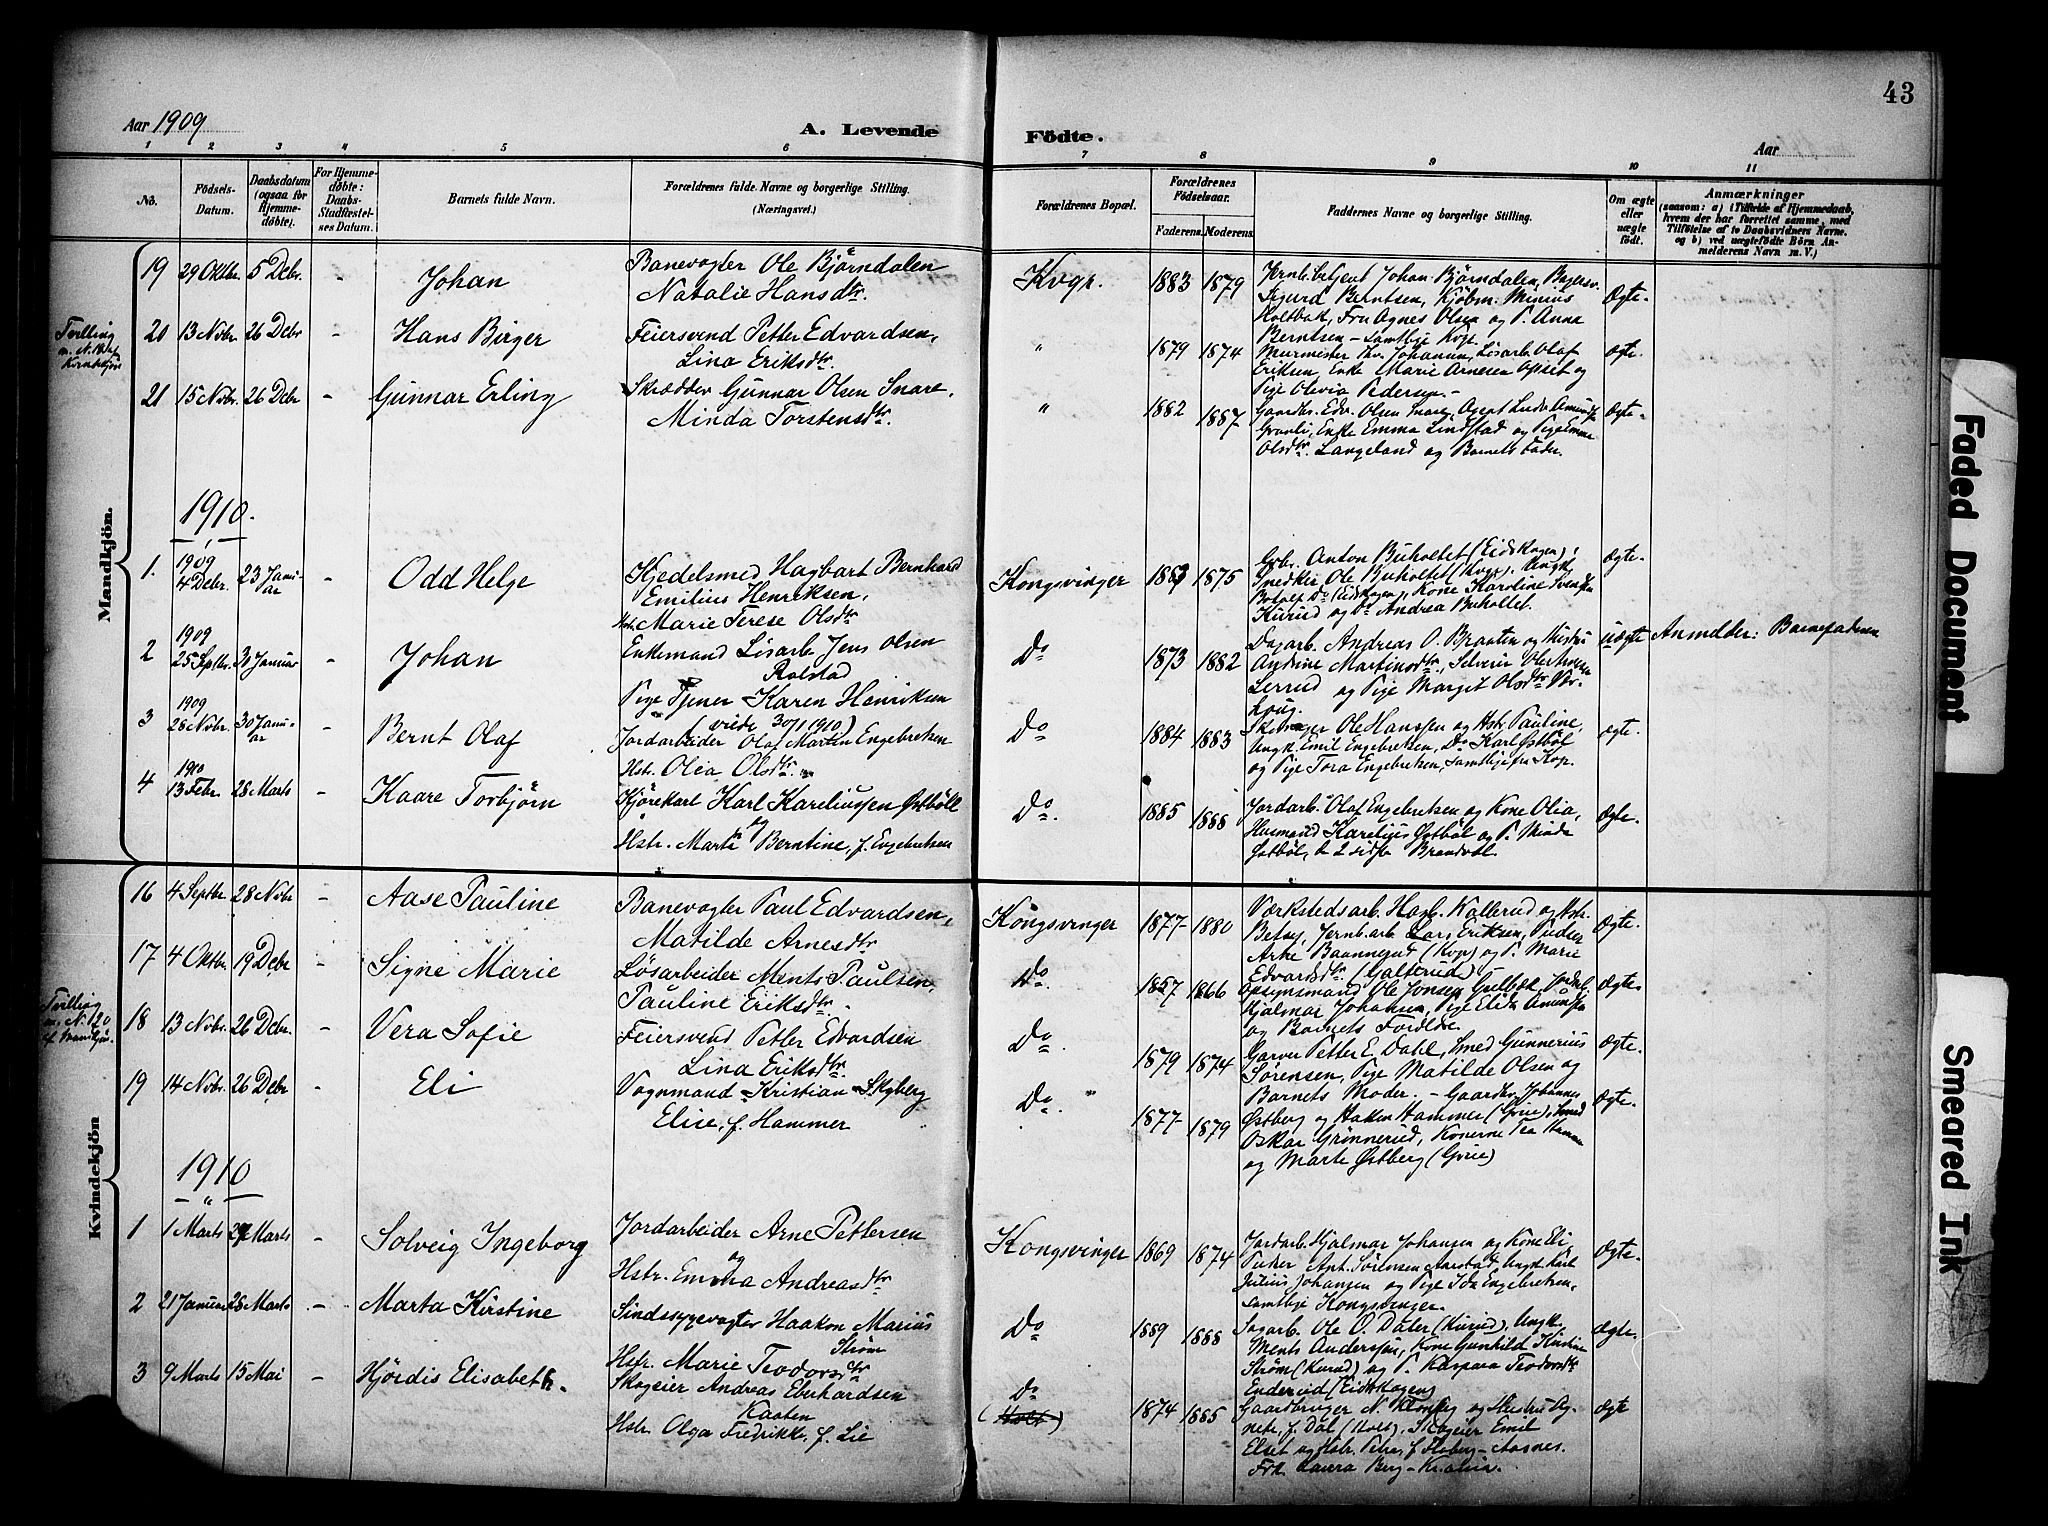 43
Aar 1909
A. Levende Födte.
Aar
1 2 3 4 5 6 7 8 9 10 11
No.
Födsels-Datum.
Daabsdatum (ogsaa for Hjemmedöbte).
For Hjemmedöbte: Daabs-Stadfæstelses Datum.
Barnets fulde Navn.
Forældrenes fulde Navne og borgerlige Stilling. (Næringsvei.)
Forældrenes Bopæl.
Forældrenes Födselsaar.
Faderens. Moderens.
Faddernes Navne og borgerlige Stilling.
Om ægte eller uægte födt.
Anmærkninger (saasom: a) i Tilfælde af Hjemmedaab, hvem der har forrettet samme, med Tilföielse af to Daabsvidners Navne, og b) ved uægtefödte Börn Anmelderens Navn m. V.)
Mandkjön.
19 29 Oktbr. 5 Debr. - Johan
Banevogter Ole Björndalen
Natalie Hansdtr.
Kvgr. 1883 1879
Jernb. betjent Johan Bjørndalen,
Sigurd Berntsen, Kjöbm. Minius
Holtbak, Fru Agnes Olsen og P. Anna
Berntsen - samtlige Kvgr.
Ægte-
Tvilling
20 13 Novbr. 26 Debr - Hans Birger
Feiersvend Petter Edvardsen,
Lina Eriksdtr.
" 1879 1874
Murmester Johansen, Lösarb. Olaf
Eriksen, Enke Marie Arnesen Opset og
Pige Olevia Pedersen.-
Ægte-
21 15 Novbr. 26 Debr - Gunnar Erling
Skrædder Gunnar Olsen Snare,
Minda Torstensdtr.
" 1882 1887
Gaardbr. Edv. Olsen Snare, Agent Ludv. Amundsen
Granli, Enke Emma Lindstad og Pige Emma
Olsdtr. Langeland og Barnets Fader.
Ægte-
1910.
1. 1909 4 Debr. 23 Januar - Odd Helge
Kjedelsmed Hagbart Bernhard
Emilius Henriksen,
Hstr. Marie Terese Olsdtr
Kongsvinger 1883 1875
Gbr. Anton Buholtet (Eidskogen),
Snedker Ole Buholtet (Kvgr), Ungk.
Botolf Do (Eidskogen), Kone Karoline Svendsen
Kurud og Do Andrea Buholtet.
Ægte-
2 1909 25 Septbr. 30 Januar - Johan
Enkemand Lösarb. Jens Olsen
Rolstad
Pige Tjener Karen Henriksen
(viede 30/1 1910)
Do 1873 1882
Dagarb. Andreas O. Braaten og Hustru
Andrine Martinsdtr., Selveier
Lerrud og Pige Margit Olsdtr
uægte Anmelder: Barnefaderen
3 1909 28 Novbr. 30 Januar - Bernt Olaf
Jordarbeider Olaf Martin Engebretsen
Hstr. Olea Olsdtr.
Do 1884 1883
Ole Hanssen og Hstr. Pauline,
Ungk. Emil Engebretsen, Do Karl Østböl
og Pige Tora Engebretsen, samtlige fra Kvgr.
Ægte-
4 1910 13 Febr. 28 Marts - Kaare Torbjörn
Kjörekarl Karl Kareliussen Østböll
og
Hstr. Marta Berntine, f. Engebretsen
Do. 1885 1888
Jordarb. Olaf Engebretsen og Kone Olea,
Husmand Karelius Østböl og P. Minda
Østböl, de 2 sidste Brandval.
Ægte-
Kvindekjön
16 4 Septbr. 28 Novbr - Aase Pauline
Banevogter Paul Edvardsen,
Matilde Arnesdtr
Kongsvinger 1877- 1880
Værkstedsarb. Harb. Kollerud og Hstr.
Betsy, Jernb. arb. Lars Eriksen, Pudser
Arne Baunnerud (Kvgr) og P. Marie
Edvardsdtr. (Galterud)
Ægte-
17 4 Oktbr. 19 Debr - Signe Marie
Lösarbeider Ments Paulsen,
Pauline Eriksdtr.
Do. 1857 1866
Opsynsmand Ole Jonsen Gulbæk, Jordarb.
Hjalmar Johansen, Pige Elida Amundsen
og Barnets Forældre
Ægte-
Tvilling m. N. 20 af Mandkjön.
18 13 Novbr. 26 Debr. - Vera Sofie
Feiersvend Petter Edvardsen
Lina Eriksdtr.
Do. 1879 1874
Garver Petter E. Dahl, Smed Gunnerius
Sörensen, Pige Matilde Olsen og
Barnets Moder.
Ægte-
19 14 Novbr. 26 Debr - Eli
Vognmand Kristian Skyberg
Elise, f. Hammer
Do. 1877- 1879
Gaardbr. Johannes
Østberg og Haken Hammer (Grue), Smed
Oskar Grönnerud, Konerne Tea Hammer
og Marte Østberg (Grue)
Ægte-
1910
1 1 Marts 27 Marts - Solveig Ingeborg
Jordarbeider Arne Pettersen
og
Hstr. Emma Andreasdtr
Kongsvinger 1869 1874
Jordarb. Hjalmar Johansen og Kone Eli
Pudser Ant. Sörensen Aarstad, Ungk. Karl
Julius Johansen og Pige Ida Engebretsen,
samtlige Kongsvinger.
Ægte-
2 21 Januar 28 Marts - Marta Kirstine
Sindssygevogter Haakon Marius
Ström
Hstr. Marie Teodorsdtr
Do 1889 1888
Sagarb. Ole O. Daler (Kurud), Ungk.
Ments Anderssen, Kone Gunhild Kirstine
Ström (Kurud) og P. Kaspara Teodorsdtr
Enderud (Eidskogen)
Ægte-
3 9 Marts 15 Mai - Hjördis Elisabeth.
Skogeier Andreas Eberhardsen
Kaaten
Hstr. Olga Fredrikke, f. Lie
Do (Holt) 1874 1885
Gaardbruger N. Tönseg og Hustru Agnete,
f. Dal (Holt), Skogeier Emil
Elset og Hstr. Petra, f. Floberg - Aasnes.
Frk. Laura Berg - Kr.ania.
Ægte
Faded Document
Smeared Ink